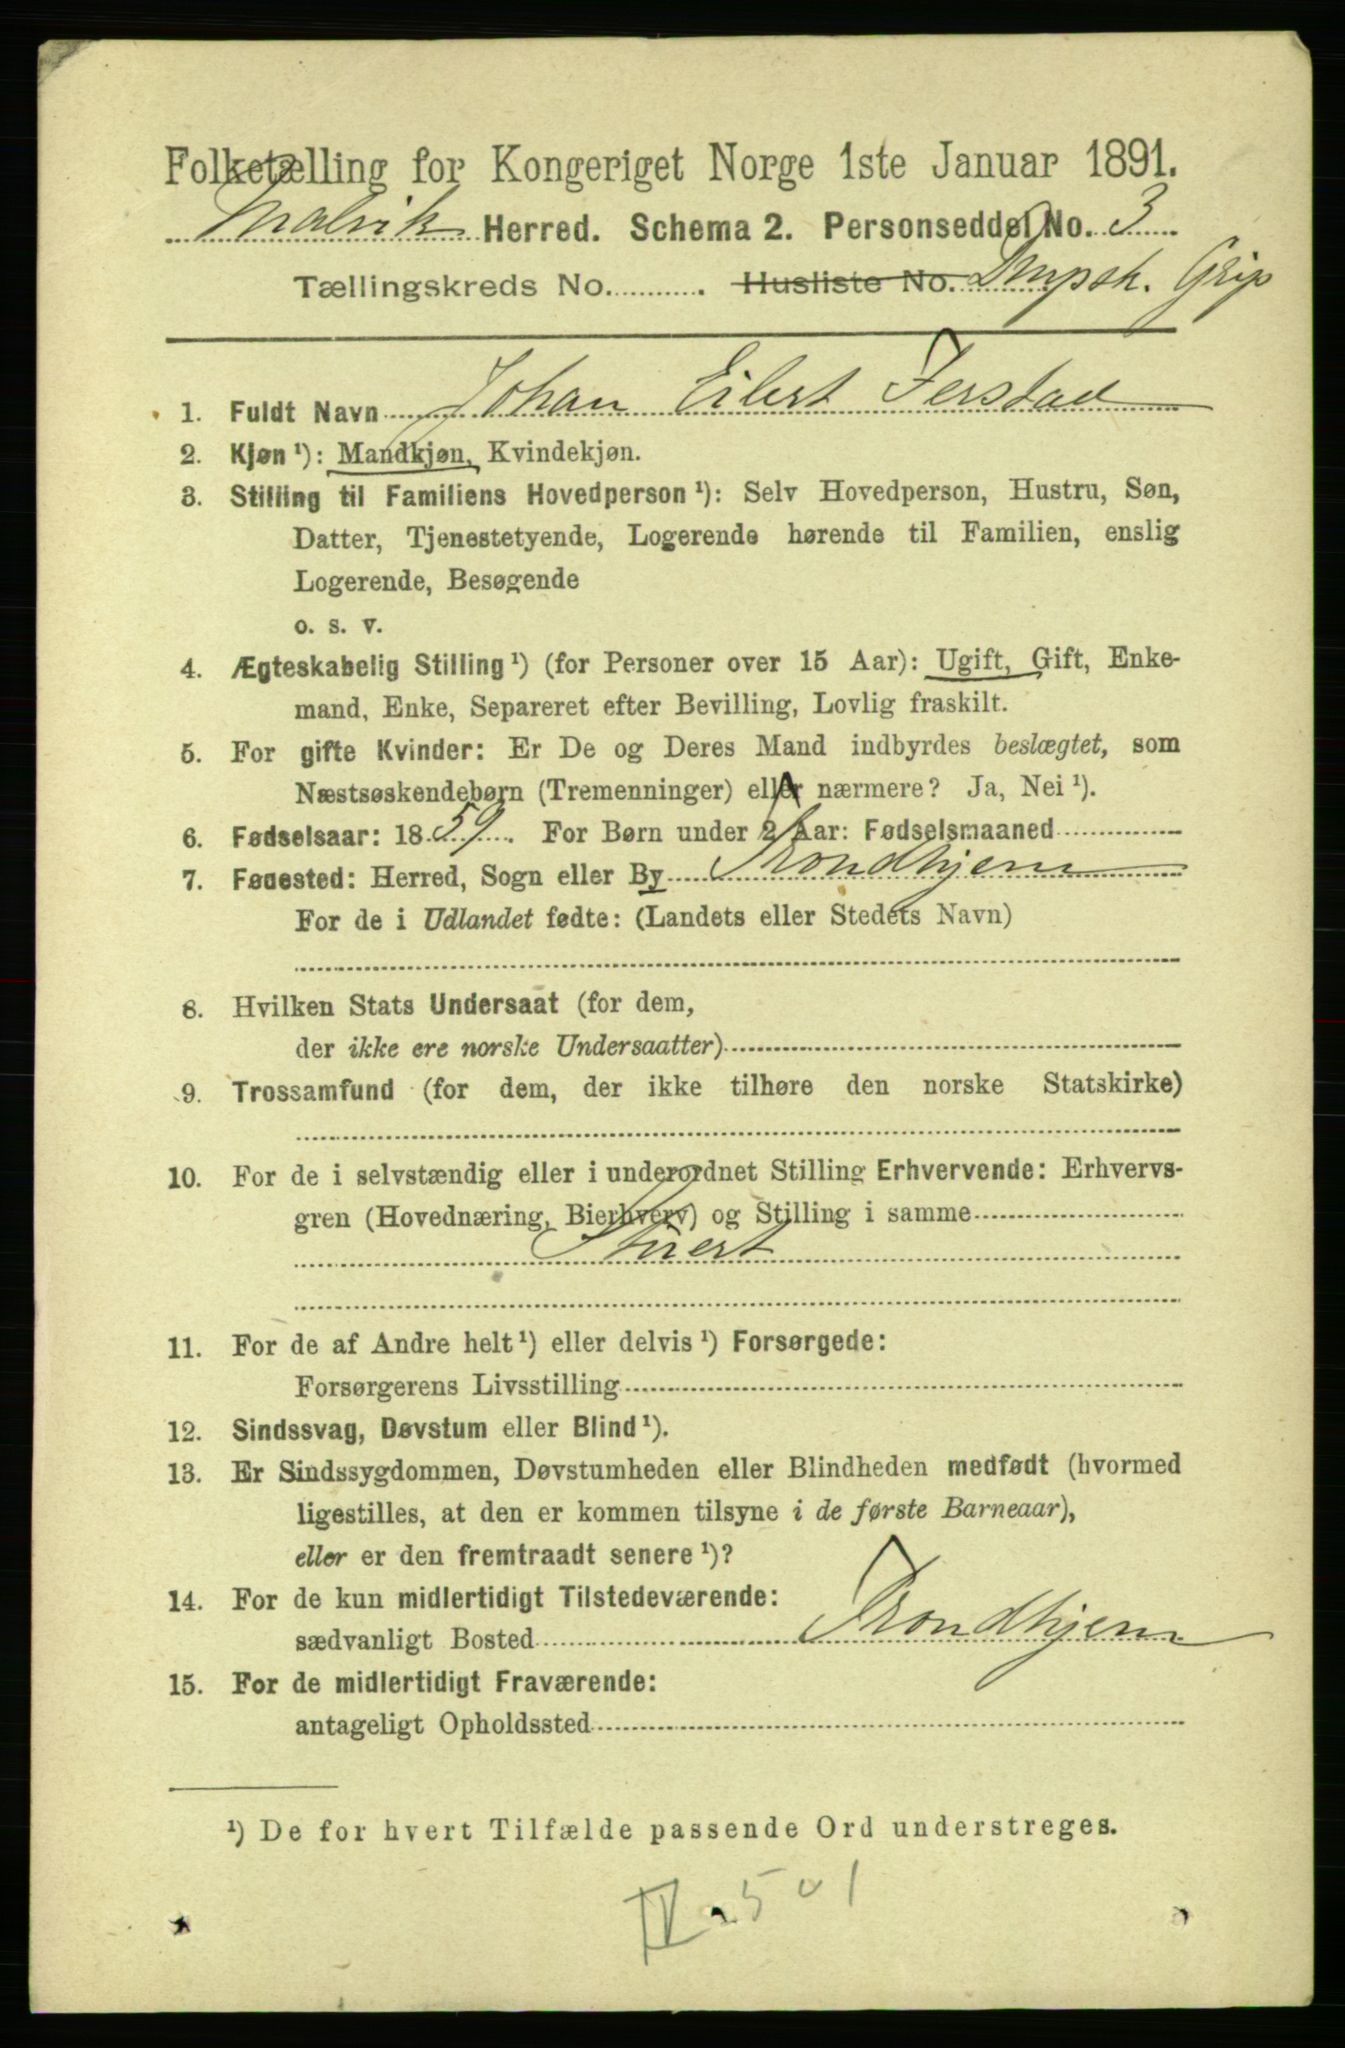 Folketælling for Kongeriget Norge 1ste Januar 1891.
Malvik Herred. Schema 2. Personseddel No. 3
Tællingskreds No. Husliste No. Dmpsk. Grip
1. Fuldt Navn Johan Eilert Ferstad
2. Kjøn ¹): Mandkjøn, Kvindekjøn.
3. Stilling til Familiens Hovedperson ¹): Selv Hovedperson, Hustru, Søn,
Datter, Tjenestetyende, Logerende hørende til Familien, enslig
Logerende, Besøgende
o. s. v.
4. Ægteskabelig Stilling ¹) (for Personer over 15 Aar): Ugift, Gift, Enke-
mand, Enke, Separeret efter Bevilling, Lovlig fraskilt.
5. For gifte Kvinder: Er De og Deres Mand indbyrdes beslægtet, som
Næstsøskendebørn (Tremenninger) eller nærmere? Ja, Nei ¹).
6. Fødselsaar: 1859. For Børn under 2 Aar: Fødselsmaaned
7. Fødested: Herred, Sogn eller By Trondhjem
For de i Udlandet fødte: (Landets eller Stedets Navn)
8. Hvilken Stats Undersaat (for dem,
der ikke ere norske Undersaatter)
9. Trossamfund (for dem, der ikke tilhøre den norske Statskirke)
10. For de i selvstændig eller i underordnet Stilling Erhvervende: Erhvervs-
gren (Hovednæring, Bierhverv) og Stilling i samme
Stuert
11. For de af Andre helt ¹) eller delvis ¹) Forsørgede:
Forsørgerens Livsstilling
12. Sindssvag, Døvstum eller Blind ¹).
13. Er Sindssygdommen, Døvstumheden eller Blindheden medfødt (hvormed
ligestilles, at den er kommen tilsyne i de første Barneaar),
eller er den fremtraadt senere ¹)?
14. For de kun midlertidigt Tilstedeværende:
sædvanligt Bosted Trondhjem
15. For de midlertidigt Fraværende:
antageligt Opholdssted
¹) De for hvert Tilfælde passende Ord understreges.
IV 501